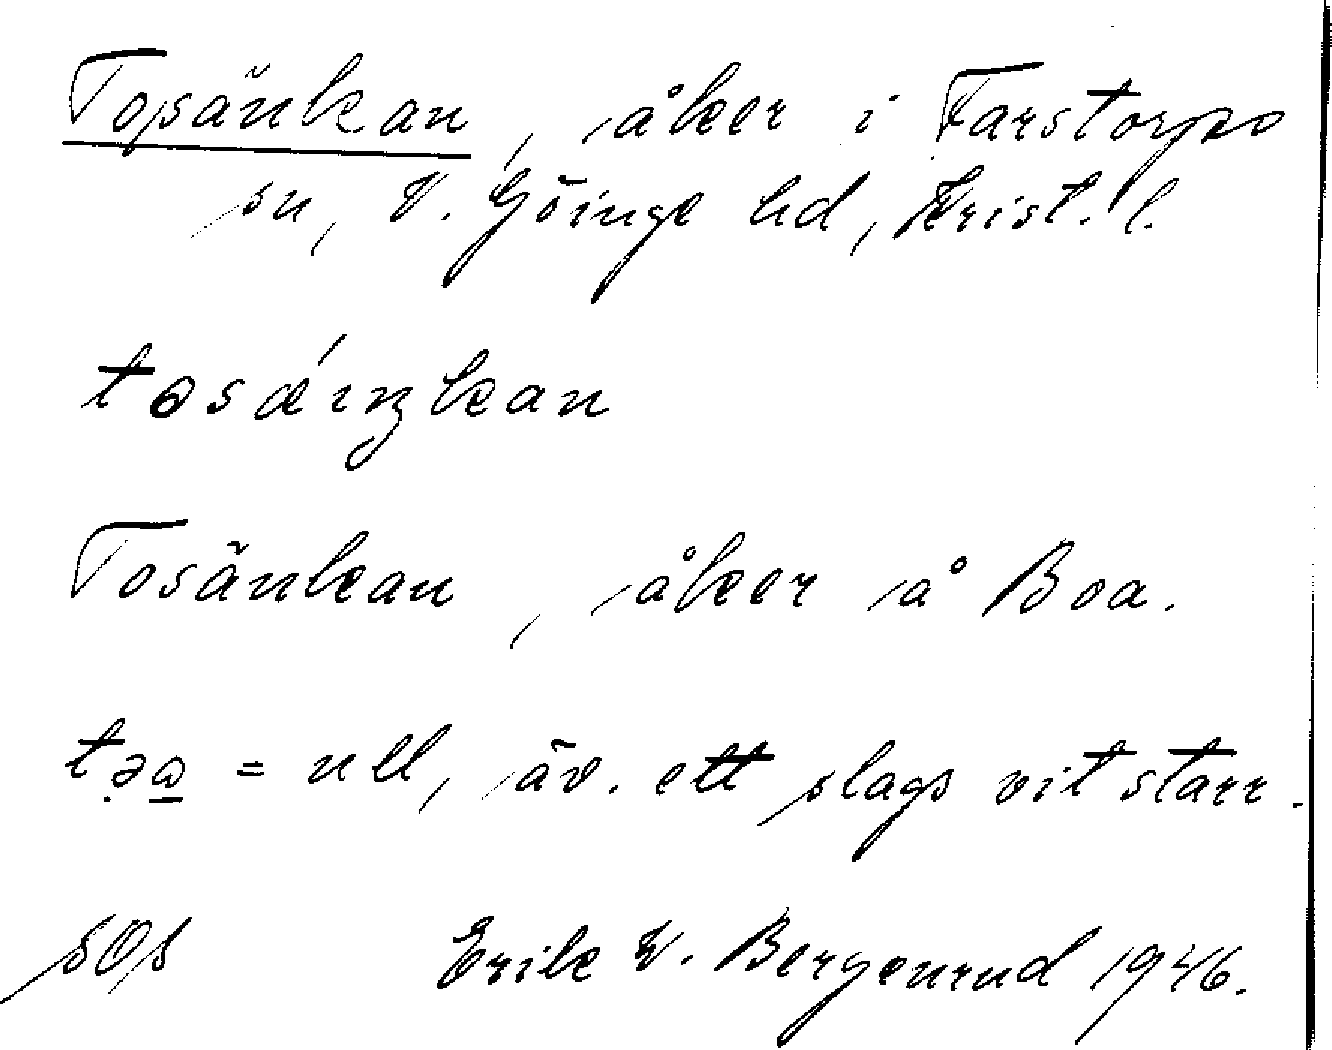 Topsänkan, åker i Farstorps
sn, V. Göinge hd, Krist. l.
təsǽıŋkan
Tosänkan, åker å Boa.
= ull, äv. ett slags vit starr.
sOs Erik W. Bergenrud 1946.